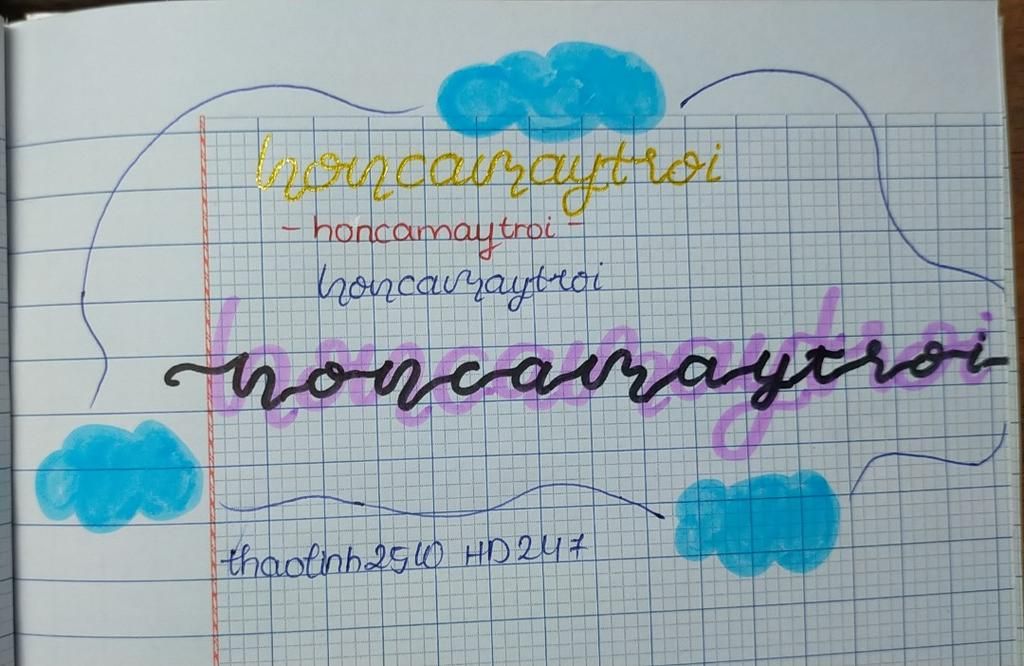 honcamaytroi
- honcamaytroi -
honcamaytroi
honcamaytroi
honcamaytroi
HD247